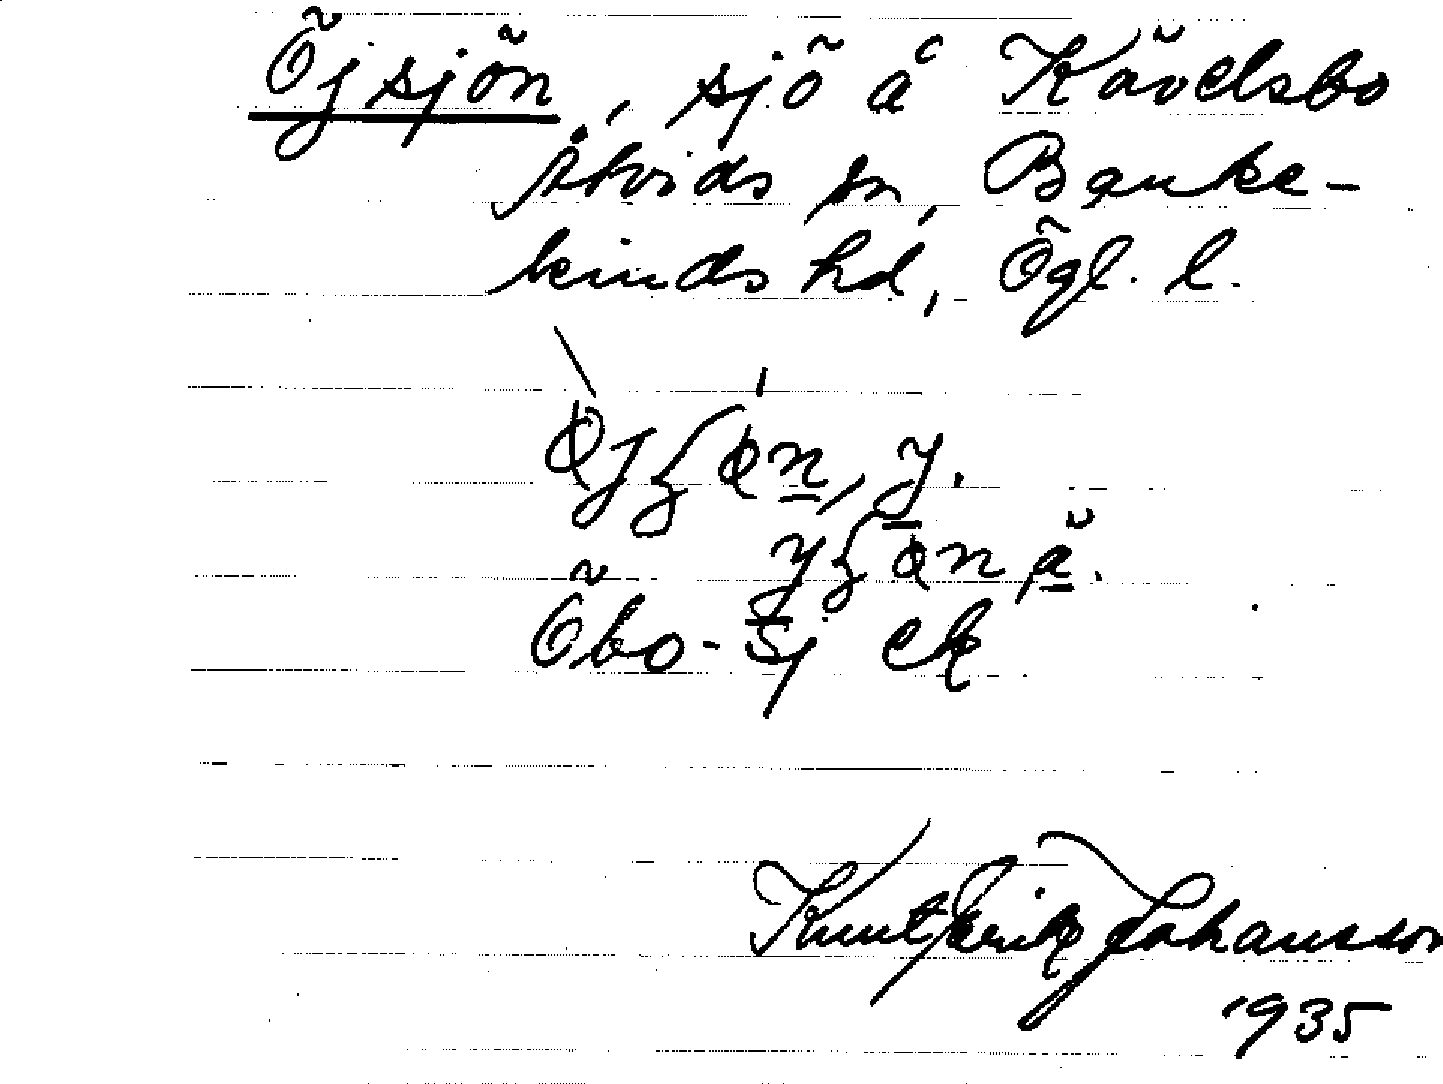 Öjsjön, sjö å Kävelsbo
Åtvids sn, Banke-
kinds hd, Ögl. l.
Öbo-sj ek
Knut Erik Johansson
1935